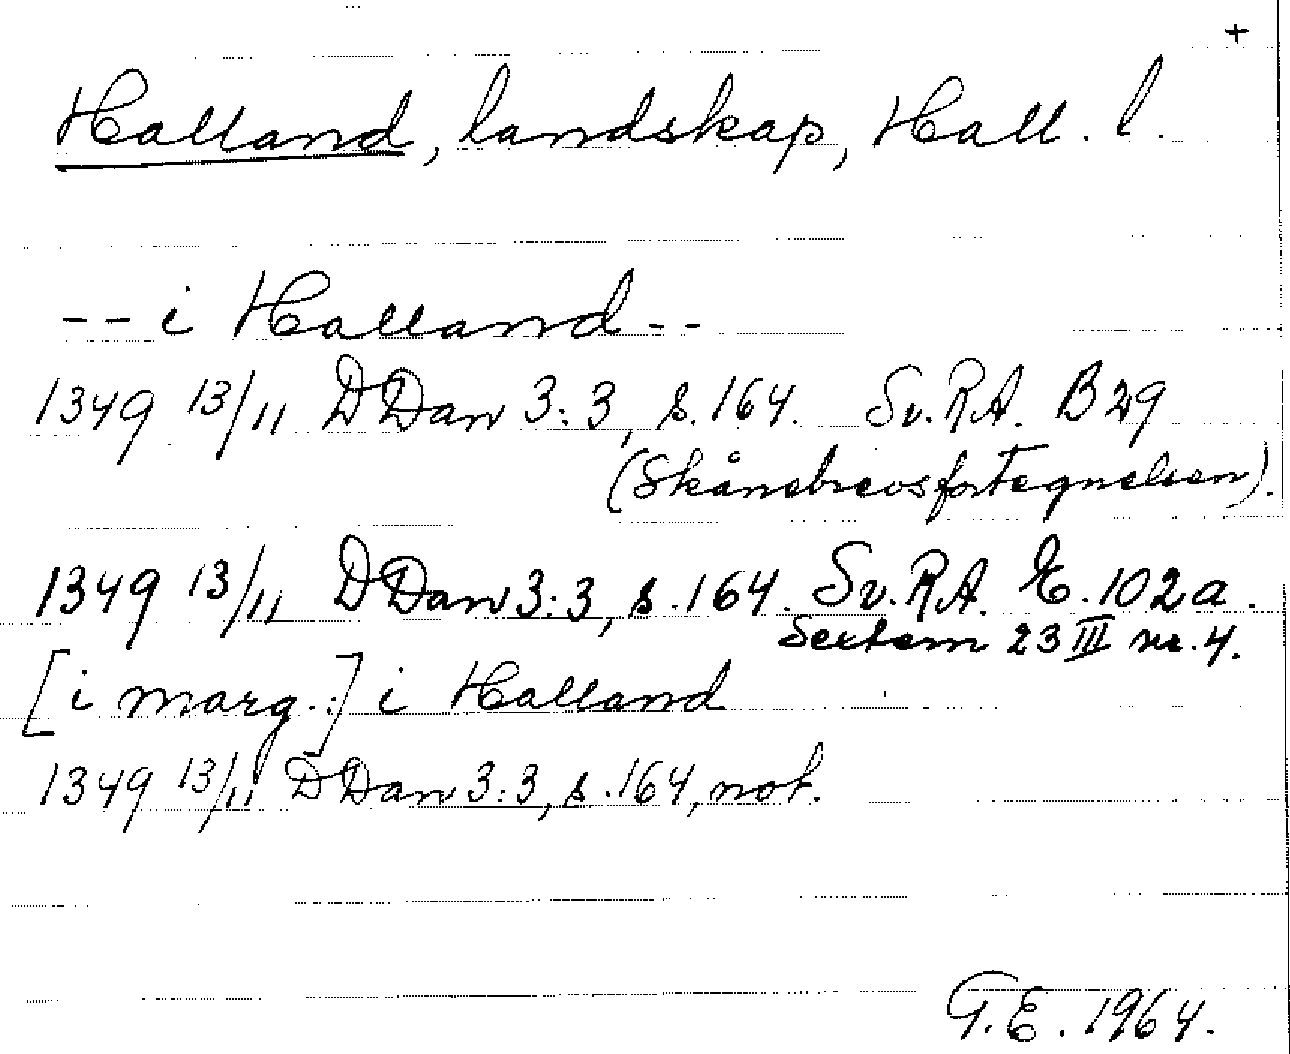 +
Halland, landskap, Hall. l.
-- i Halland --
1349 13/11 DDan 3:3, s. 164. Sv. RA. B 29
(Skånebrevsfortegnelsen).
1349 13/11 DDan 3:3, s. 164. Sv. RA. E. 102a.
Sextern 23 III nr. 4.
[i marg.:] i Halland
1349 13/11 DDan 3:3, s. 164, not.
G.E. 1964.